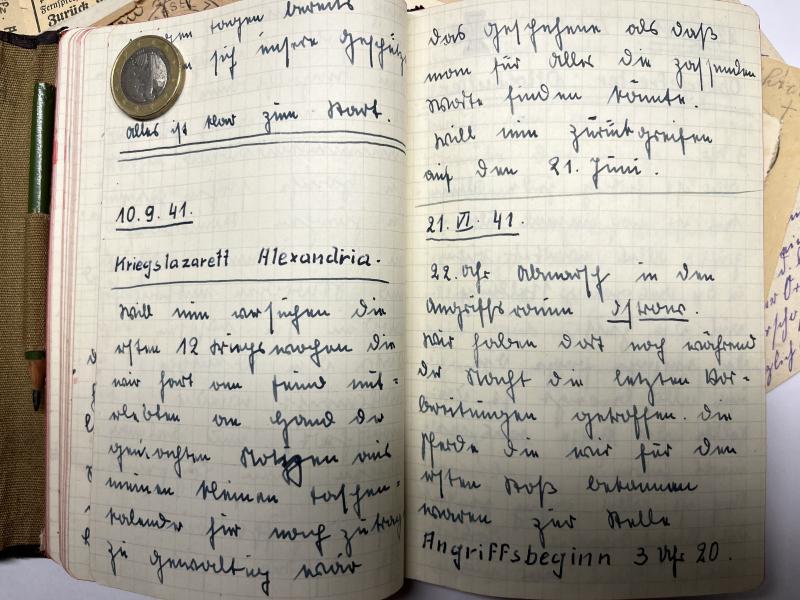 tragen bereits
sich unsere Geschütz
alles ist klar zum Start.
10.9.41.
Kriegslazarett Alexandria.
Will nun versuchen die
ersten 12 Kriegswochen die
wir hart am Feind mit-
erlebten an Hand der
gemachten Notizen aus
meinen kleinen Taschen-
kalender hier nach zu trag
zu gewaltig war
das geschehene als daß
man für alles die passenden
Worte finden könnte.
Will nun zurückgreifen
auf den 21. Juni.
21. VI. 41.
22. Uhr Abmarsch in den
Angriffsraum Ostrow.
Wir haben dort noch während
der Nacht die letzten Vor-
bereitungen getroffen. die
Pferde die wir für den
ersten Stoß bekamen
waren zur Stelle
Angriffsbeginn 3 Uhr 20.
Zurück